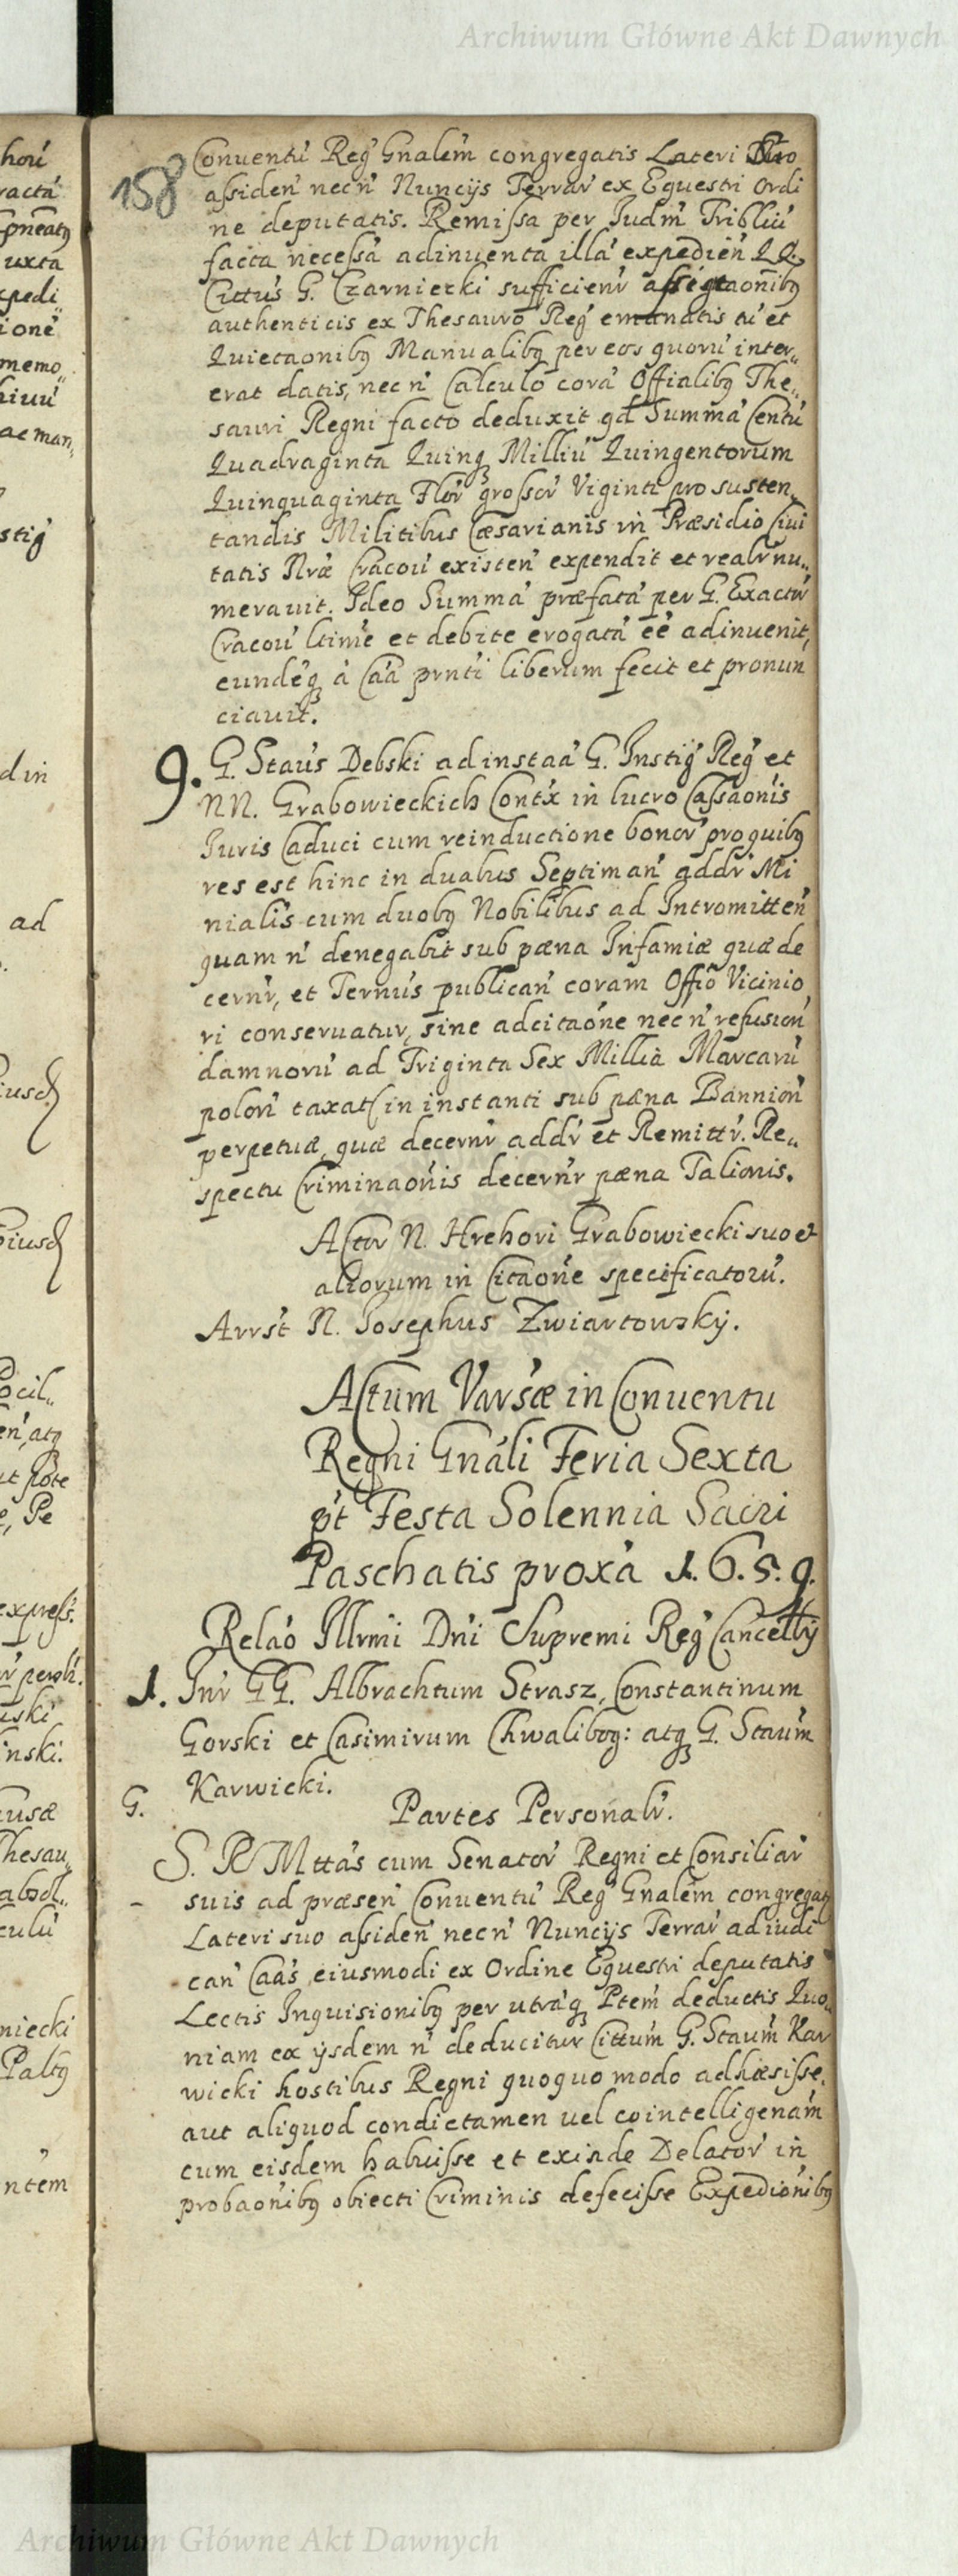 Archiwum Główne Akt Dawnych
158
Conventú Reg Gnalém congregatis Lateri Nro
assiden necn Nuncijs Terrar ex Equestri Ordi
ne deputatis. Remissa per Judm Tribliú
facta necessá adinventa illá expedien
Cittus G. Czarniecki sufficienr assegtaonibq
authenticis ex Thesauro Reg emanatis tú et
Quietaonibq Manualibq per eos quorú inter„
erat datis, nec n Calculo corá Offialibq The„
sauri Regni facto deduxit qd Summá Centú
Quadraginta Quinq Milliú Quingentorum
Quinquaginta Flor grossor Viginti pro susten„
tandis Militibus Cæsarianis in Præsidio Civi
tatis Nræ Cracov existen expendit et realr nu„
meravit. Ideo Summá præfatá per G. Exactor
Cracov ltime et debite erogatá eé adinvenit,
eundéq á Caá prnti liberum fecit et pronun
ciavit.
9. G. Staus Debski ad instaá G. Instig Reg et
NN. Grabowieckich Contx in lucro Cassaonis
Juris Caduci cum reinductione bonor pro quibq
res est hinc in duabus Septiman addr Mi
nialis cum duobq Nobilibus ad Intromitten
quam n denegabit sub pæna Infamiæ quæ de
cernr, et Ternus publican coram Offio Vicinio
ri conservatur, sine adcitaóne nec n refusion
damnorú ad Triginta Sex Millia Marcarú
polon taxat in instanti sub pæna Bannion
perpetuæ, quæ decernr addr et Remittr. Re„
spectu Criminaonis decernr pæna Talionis.
Actor N. Hrehori Grabowiecki suo et
aliorum in Citaone specificatorú.
Arrst N. Josephus Zwiartowsky.
Actum Varsæ in Conventu
Regni Gnáli Feria Sexta
pt Festa Solennia Sacri
Paschatis proxá 1.6.5.9.
Relao Illrmi Dni Supremi Reg Cancellrij
1. Inr GG. Albrachtum Strasz, Constantinum
Gorski et Casimirum Chwalibog: atq G. Staum
Karwicki.
G. Partes Personalr.
S. R Mttás cum Senator Regni et Consiliar
suis ad præsen Conventú Reg Gnalém congregatq
Lateri suo assiden necn Nuncijs Terrar ad iudi
can Caás eiusmodi ex Ordine Equestri deputatis
Lectis Inquisionibq per utráq Ptem deductis Quo„
niam ex ijsdem n deducitur Cittum G. Staum Kar
wicki hostibus Regni quoquo modo adhæsisse,
aut aliquod condictamen vel cointelligenám
cum eisdem habuisse et exinde Delator in
probaonibq obiecti Criminis defecisse Expedionibq
Archiwum Główne Akt Dawnych